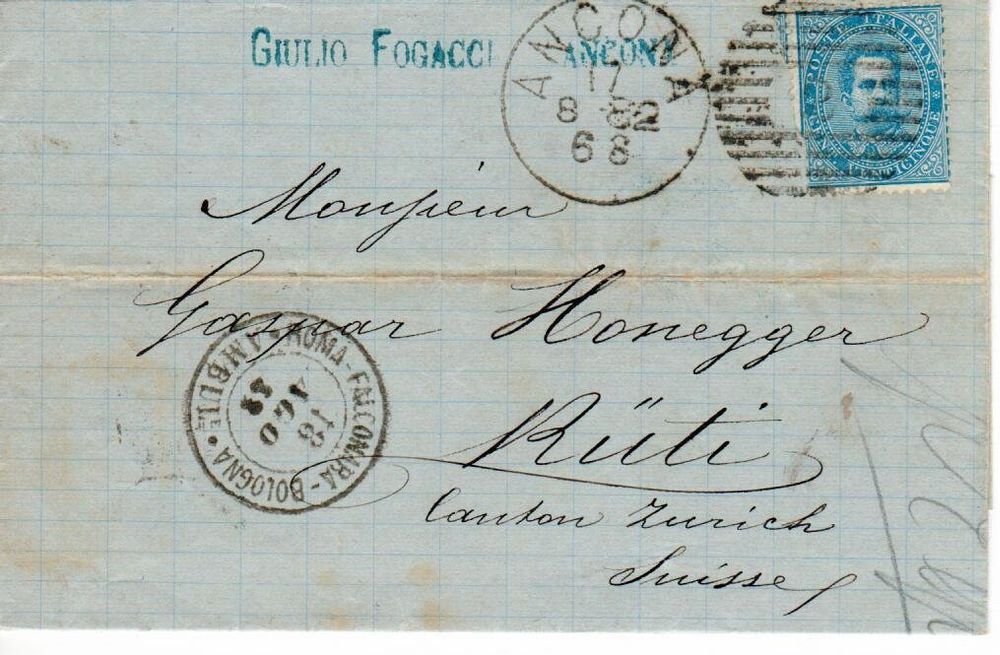 GIULIO FOGACCI ANCONA
ANCONA
17
8 82
6 8
POSTE ITALIANE
CENT. VENTICINQUE
Monsieur
Gaspar Honegger
Rüti
Canton Zurich
Suisse
ROMA-FALCONARA-BOLOGNA
AMBULE
18
AGO